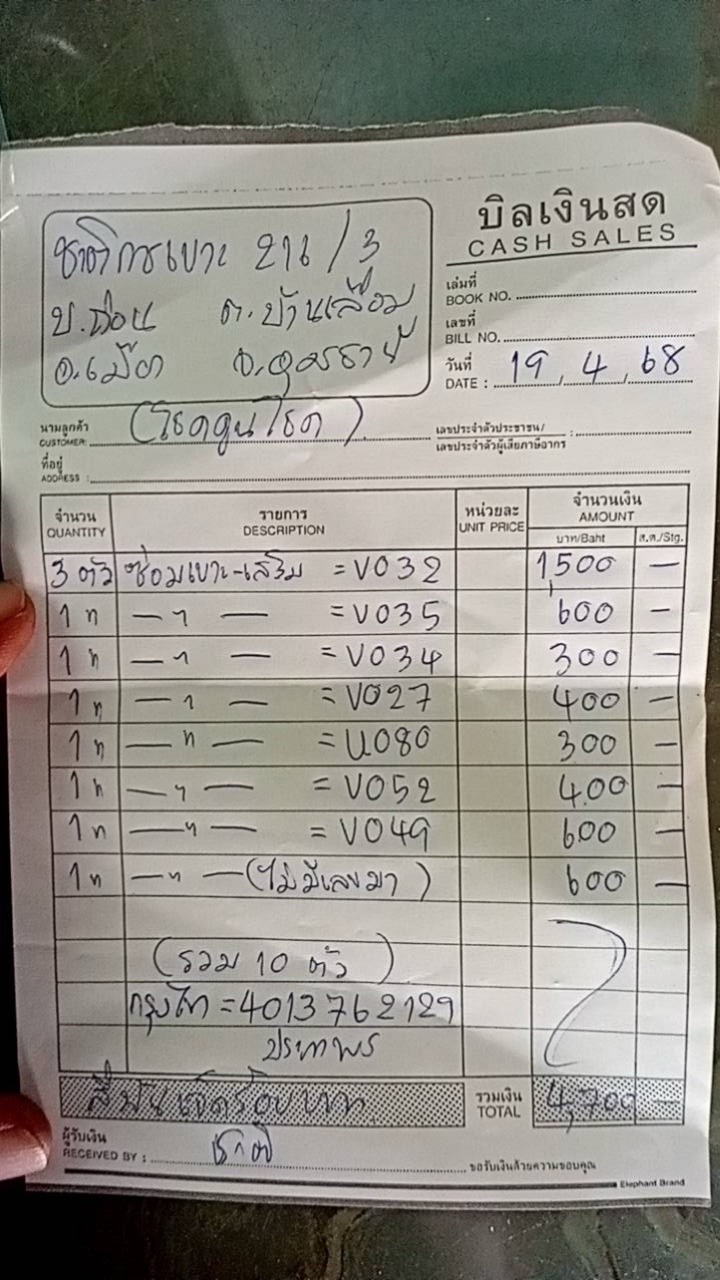 บิลเงินสด
CASH SALES
ชาติการเบาะ 216/3
บ.ถ่อน ต.บ้านเลื่อม
อ.เมือง จ.อุดรธานี
เล่มที่
BOOK NO.
เลขที่
BILL NO.
วันที่
DATE : 19 / 4 / 68
นามลูกค้า
CUSTOMER: (โชคคูนโชค)
เลขประจำตัวประชาชน/
เลขประจำตัวผู้เสียภาษีอากร :
ที่อยู่
ADDRESS :
จำนวน รายการ หน่วยละ จำนวนเงิน
QUANTITY DESCRIPTION UNIT PRICE AMOUNT
บาท/Baht ส.ต./Stg.
3 ตัว ซ่อมเบาะ-เสริม = V032 1,500 —
1 " — " — = V035 600 —
1 " — " — = V034 300 —
1 " — " — = V027 400 —
1 " — " — = U080 300 —
1 " — " — = V052 400 —
1 " — " — = V049 600 —
1 " — " — (ไม่มีเลขมา) 600 —
(รวม 10 ตัว)
กรุงไทย = 4013762129
ประภาพร
สี่พันเจ็ดร้อยบาท รวมเงิน
TOTAL 4,700 —
ผู้รับเงิน
RECEIVED BY : ชาติ
ขอรับเงินด้วยความขอบคุณ
Elephant Brand